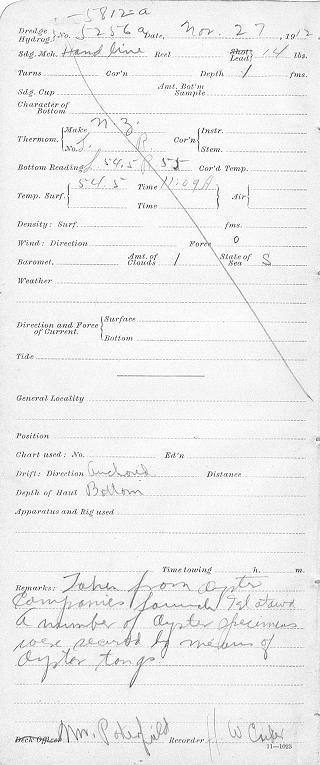 5812-a
Dredge
Hydrog. No. 5256a Date, Nov. 27, 1912.
Sdg. Mch. Hand line Reel Shot Lead 14 lbs.
Turns Cor'n Depth 1 fms.
Sdg. Cup Amt. Bot'm Sample
Character of Bottom
Thermom. Make N. Z. Cor'n Instr.
No. L R Stem.
Bottom Reading L 54.5 R 55 Cor'd Temp.
Temp. Surf. 54.5 Time 11:09 A Air
Time
Density: Surf. fms.
Wind: Direction Force 0
Baromet. Amt. of Clouds 1 State of Sea S
Weather
Direction and Force of Current. Surface
Bottom
Tide
General Locality
Position
Chart used: No. Ed'n
Drift: Direction Anchored Distance
Depth of Haul Bottom
Apparatus and Rig used
Time towing h. m.
Remarks: Taken from Oyster
Companies launch
A number of Oyster specimens
were secured by means of
Oyster tongs
Deck Officer Wm. Recorder H W
11—1023